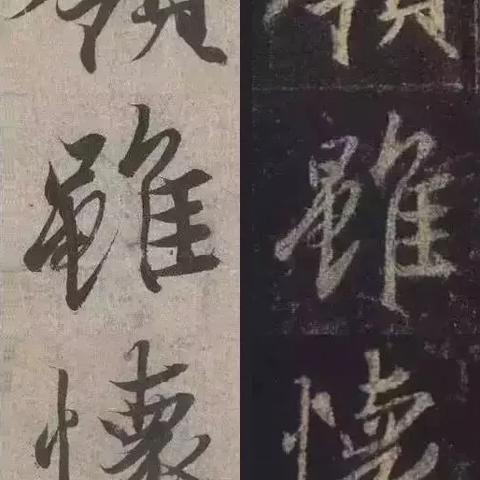 領雖懷
領雖懷